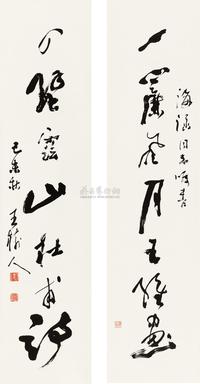 海禄同志嘱書
一簾風月王維畫
四壁雲山杜甫詩
己未秋